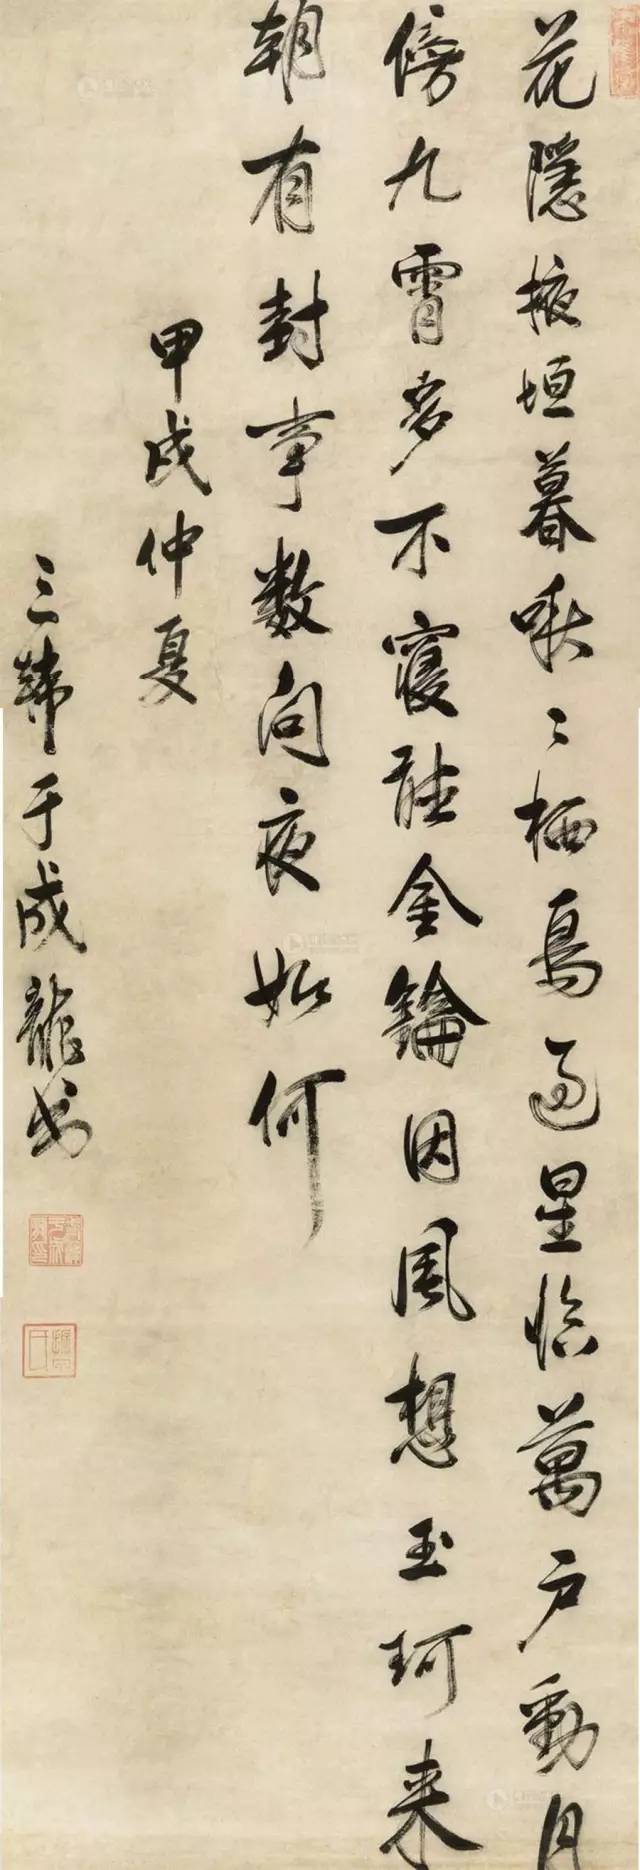 花隱掖垣暮啾〻栖鳥過星臨萬户動月
傍九霄多不寢聽金鑰因風想玉珂来
朝有封事数问夜如何
甲戌仲夏
三韓于成龍書